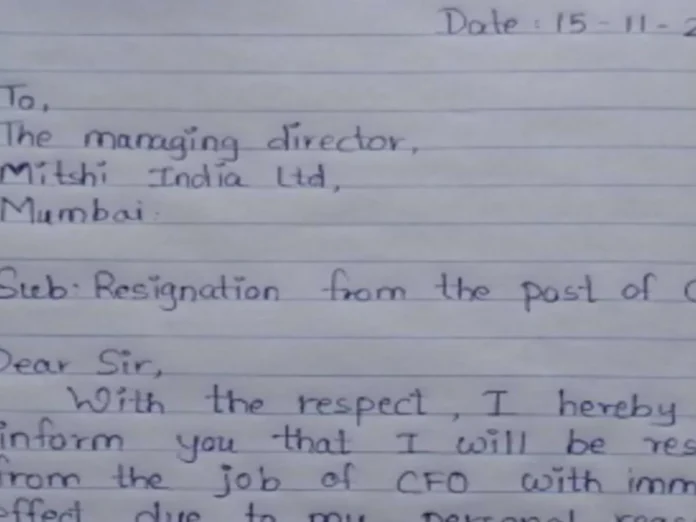 Date : 15 - 11 - 2
To,
The managing director,
Mitshi India Ltd,
Mumbai.
Sub: Resignation from the post of C
Dear Sir,
With the respect, I hereby
inform you that I will be res
from the job of CFO with imm
effect due to my personal reas